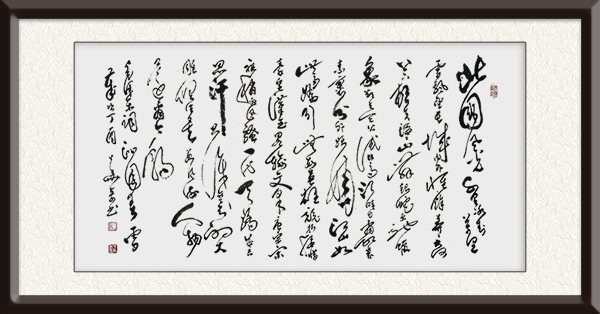 北国风光千里冰封万里
雪飘望长城内外惟余莽莽大河
上下顿失滔滔山舞银蛇原驰蜡
象欲与天公试比高须晴日看红装
素裹分外妖娆江山如
此多娇引无数英雄竞折腰
惜秦皇汉武略输文采唐宗宋
祖稍逊风骚一代天骄成吉
思汗只识弯弓射大
雕俱往矣数风流人物
还看今朝
毛泽东词沁园春雪
丁酉